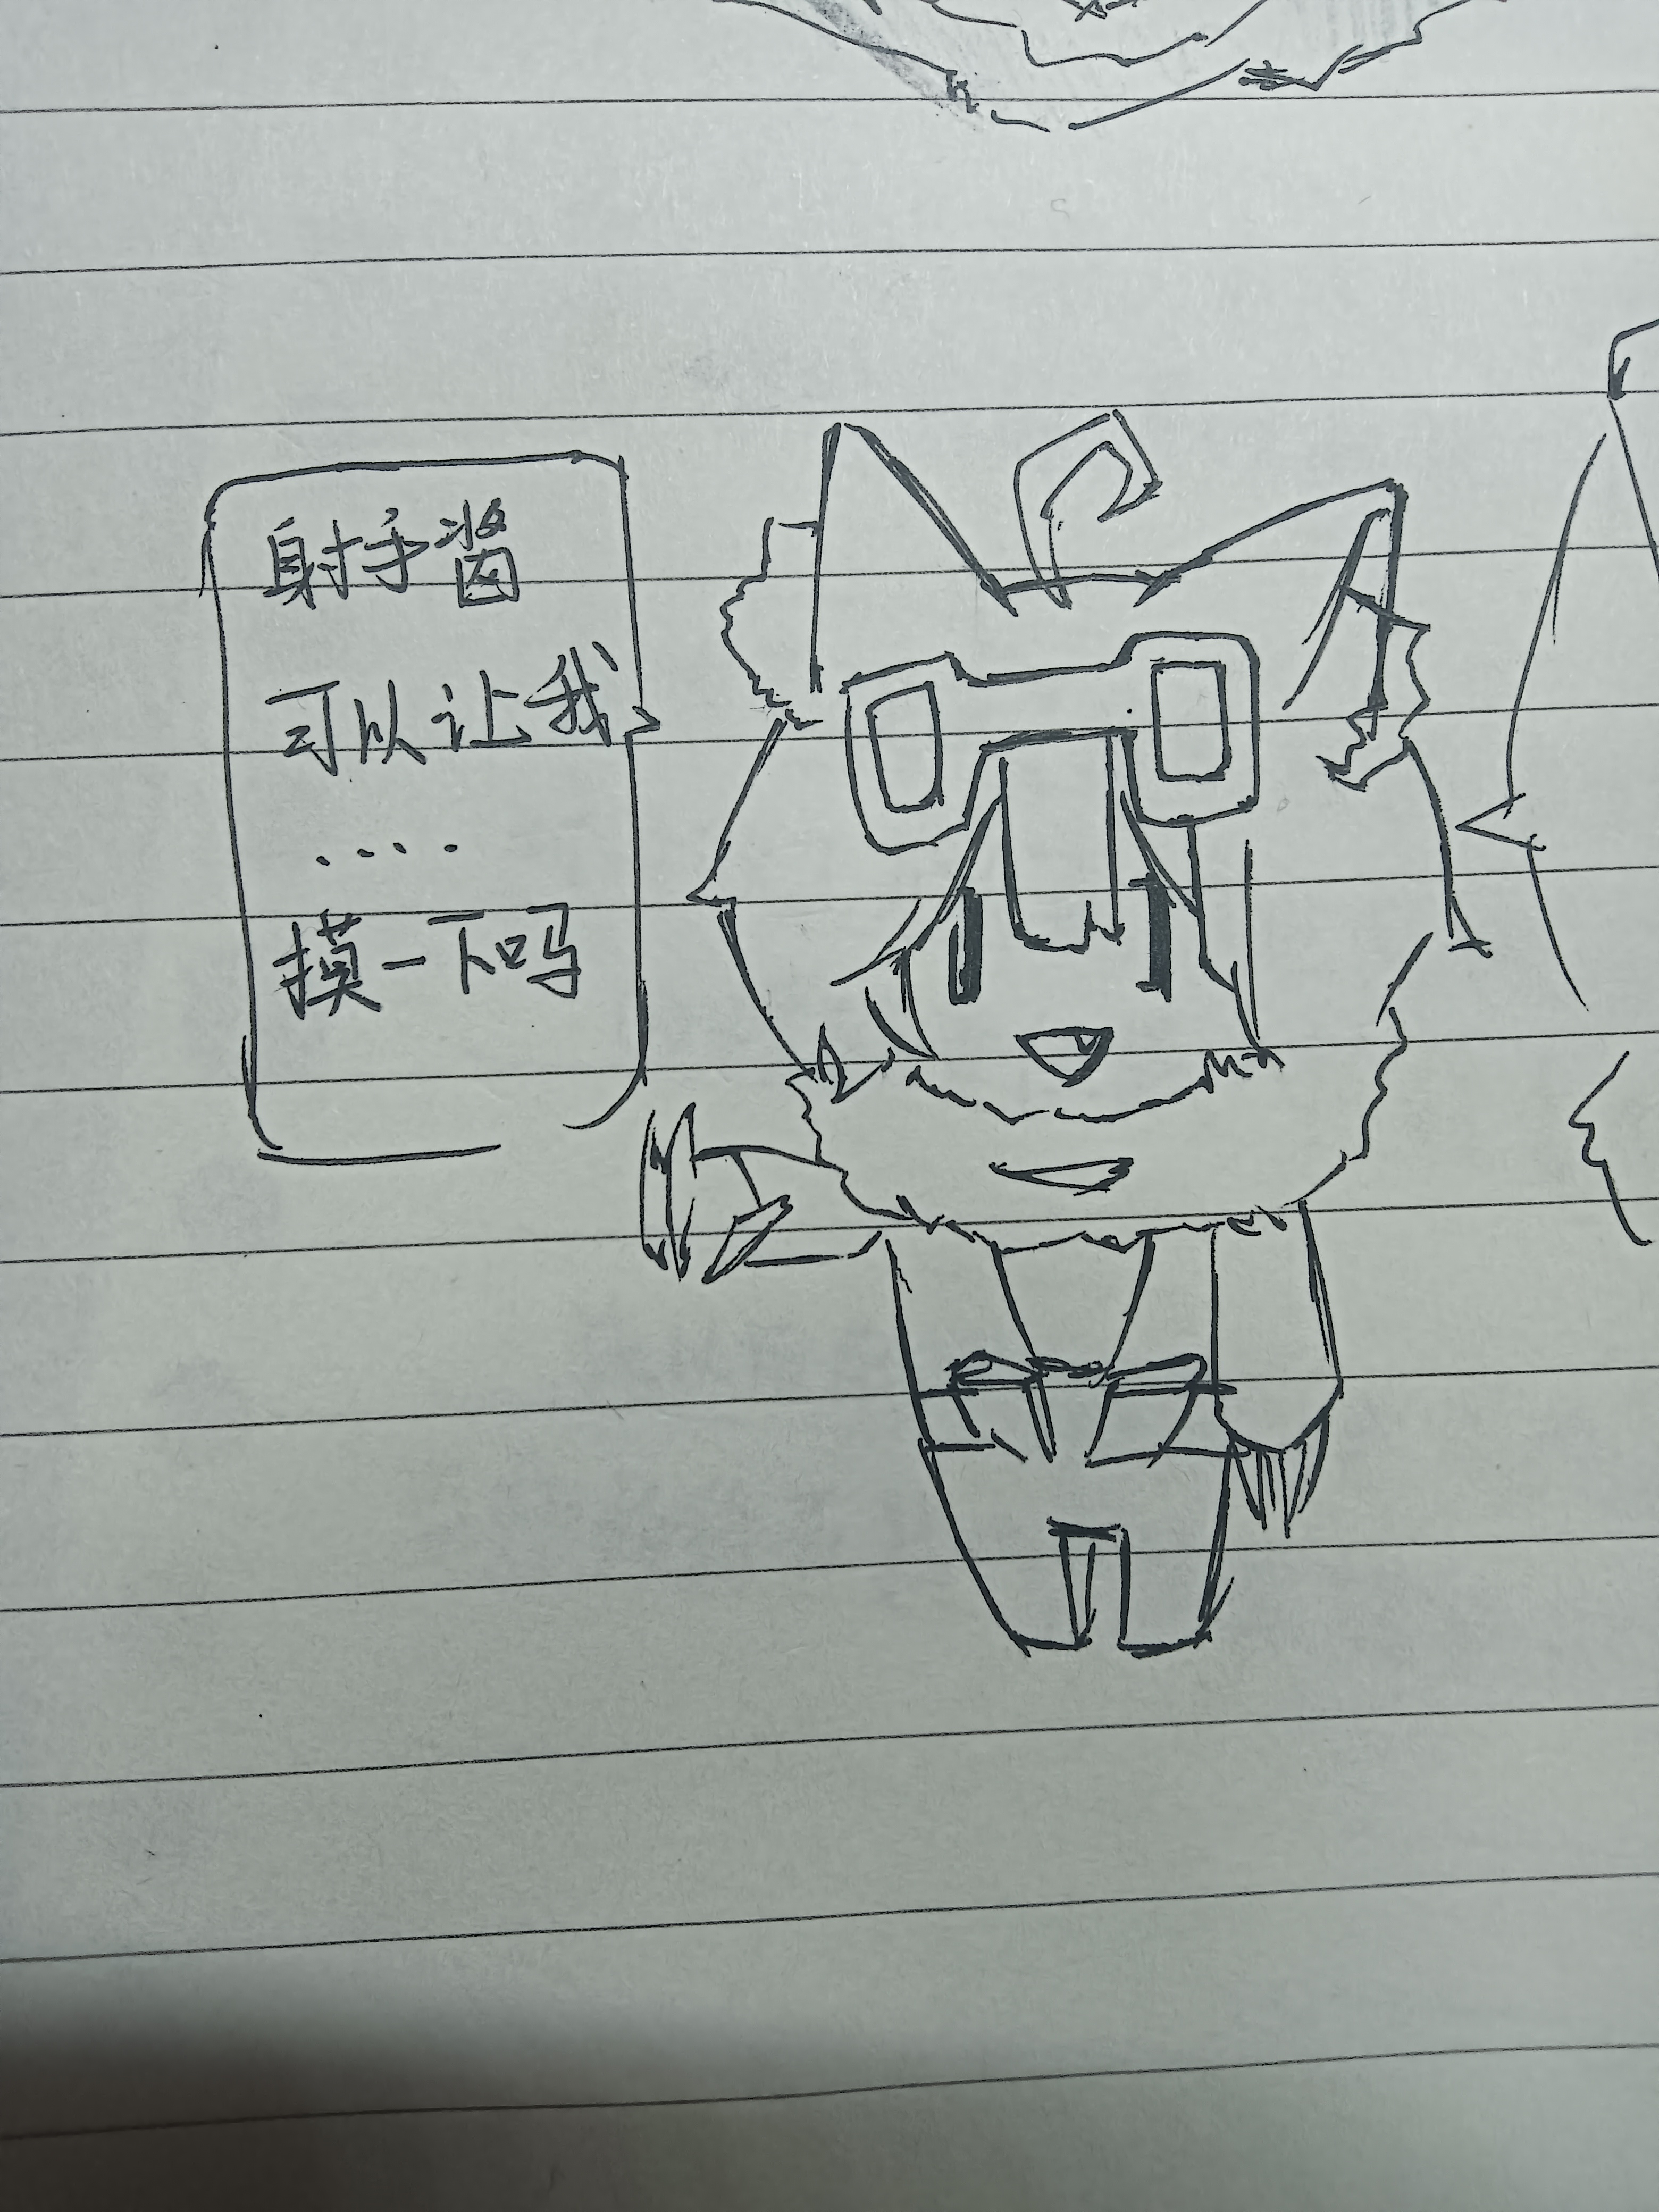 射手酱
可以让我
....
摸一下吗